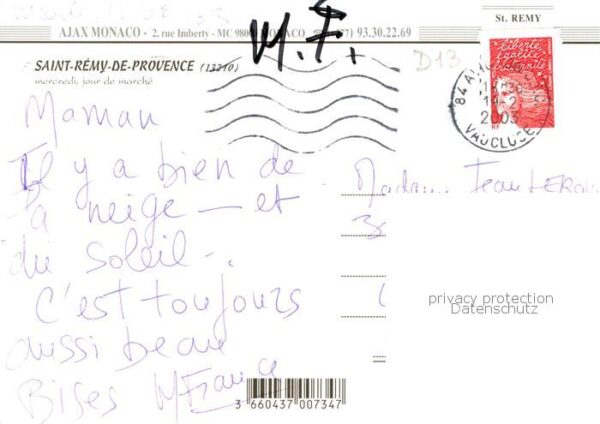 AJAX MONACO - 2, rue Imberty - MC 98000 MONACO 93.30.22.69
St. REMY
M.F.
D13
SAINT-RÉMY-DE-PROVENCE (13210)
mercredi, jour de marché
liberté
égalité
fraternité
RF
84 A
19-2
2003
VAUCLUSE
Maman
Il y a bien de
la neige - et
du soleil -.
C'est toujours
aussi beau
Bises MFrance
Madame Jean
privacy protection
Datenschutz
3 660437 007347